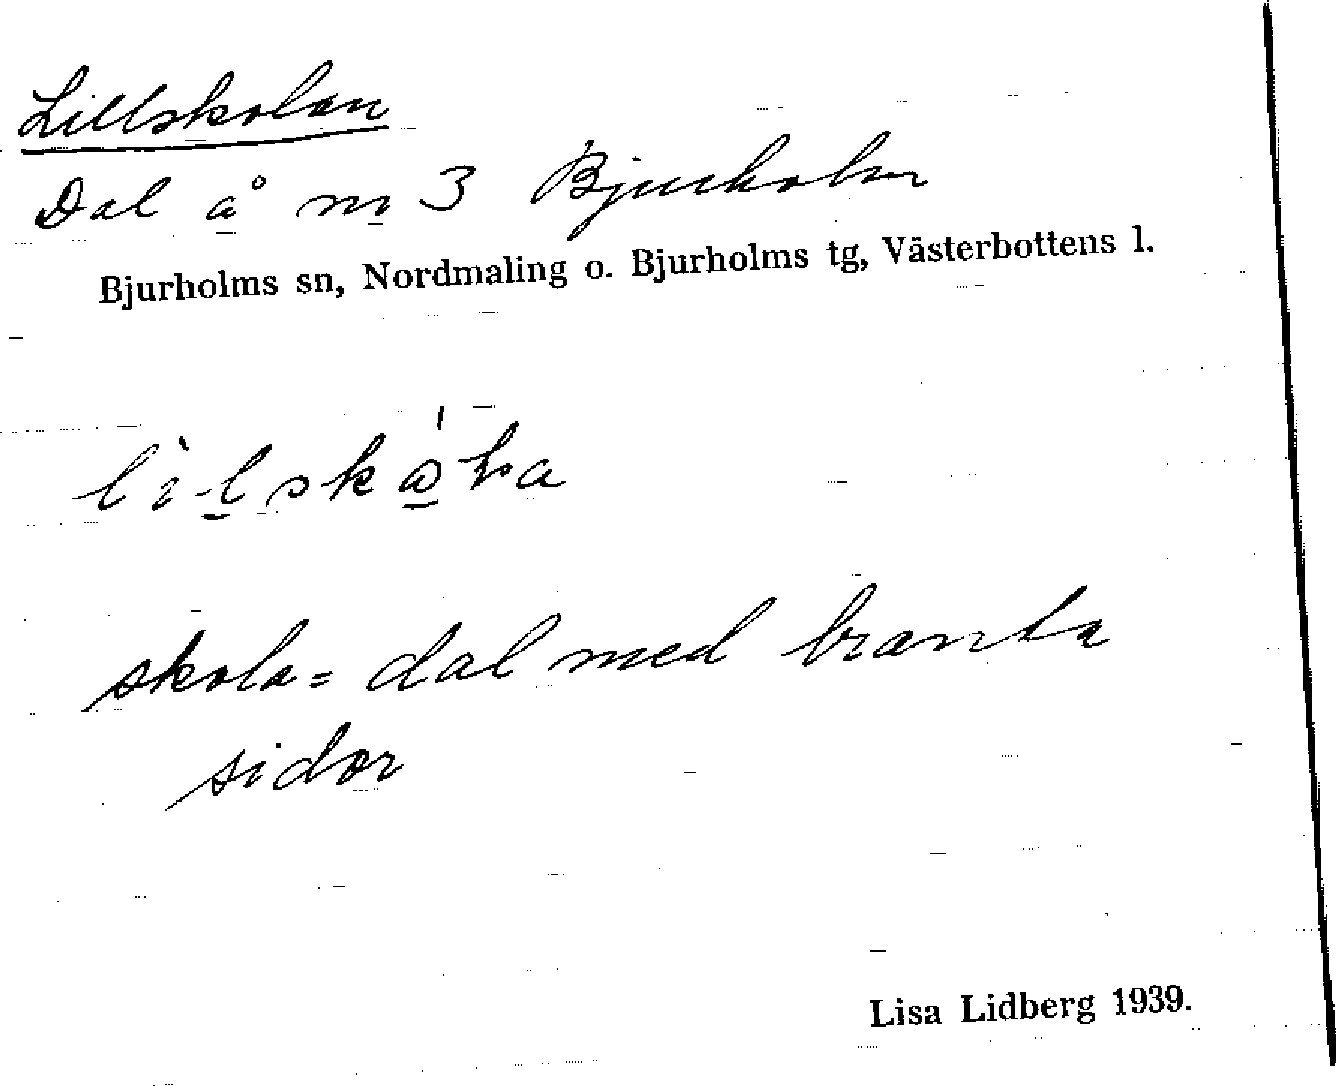 Lillskolan
Dal å nr 3 Bjurholm
Bjurholms sn, Nordmaling o. Bjurholms tg, Västerbottens l.
skola = dal med branta
sidor
Lisa Lidberg 1939.